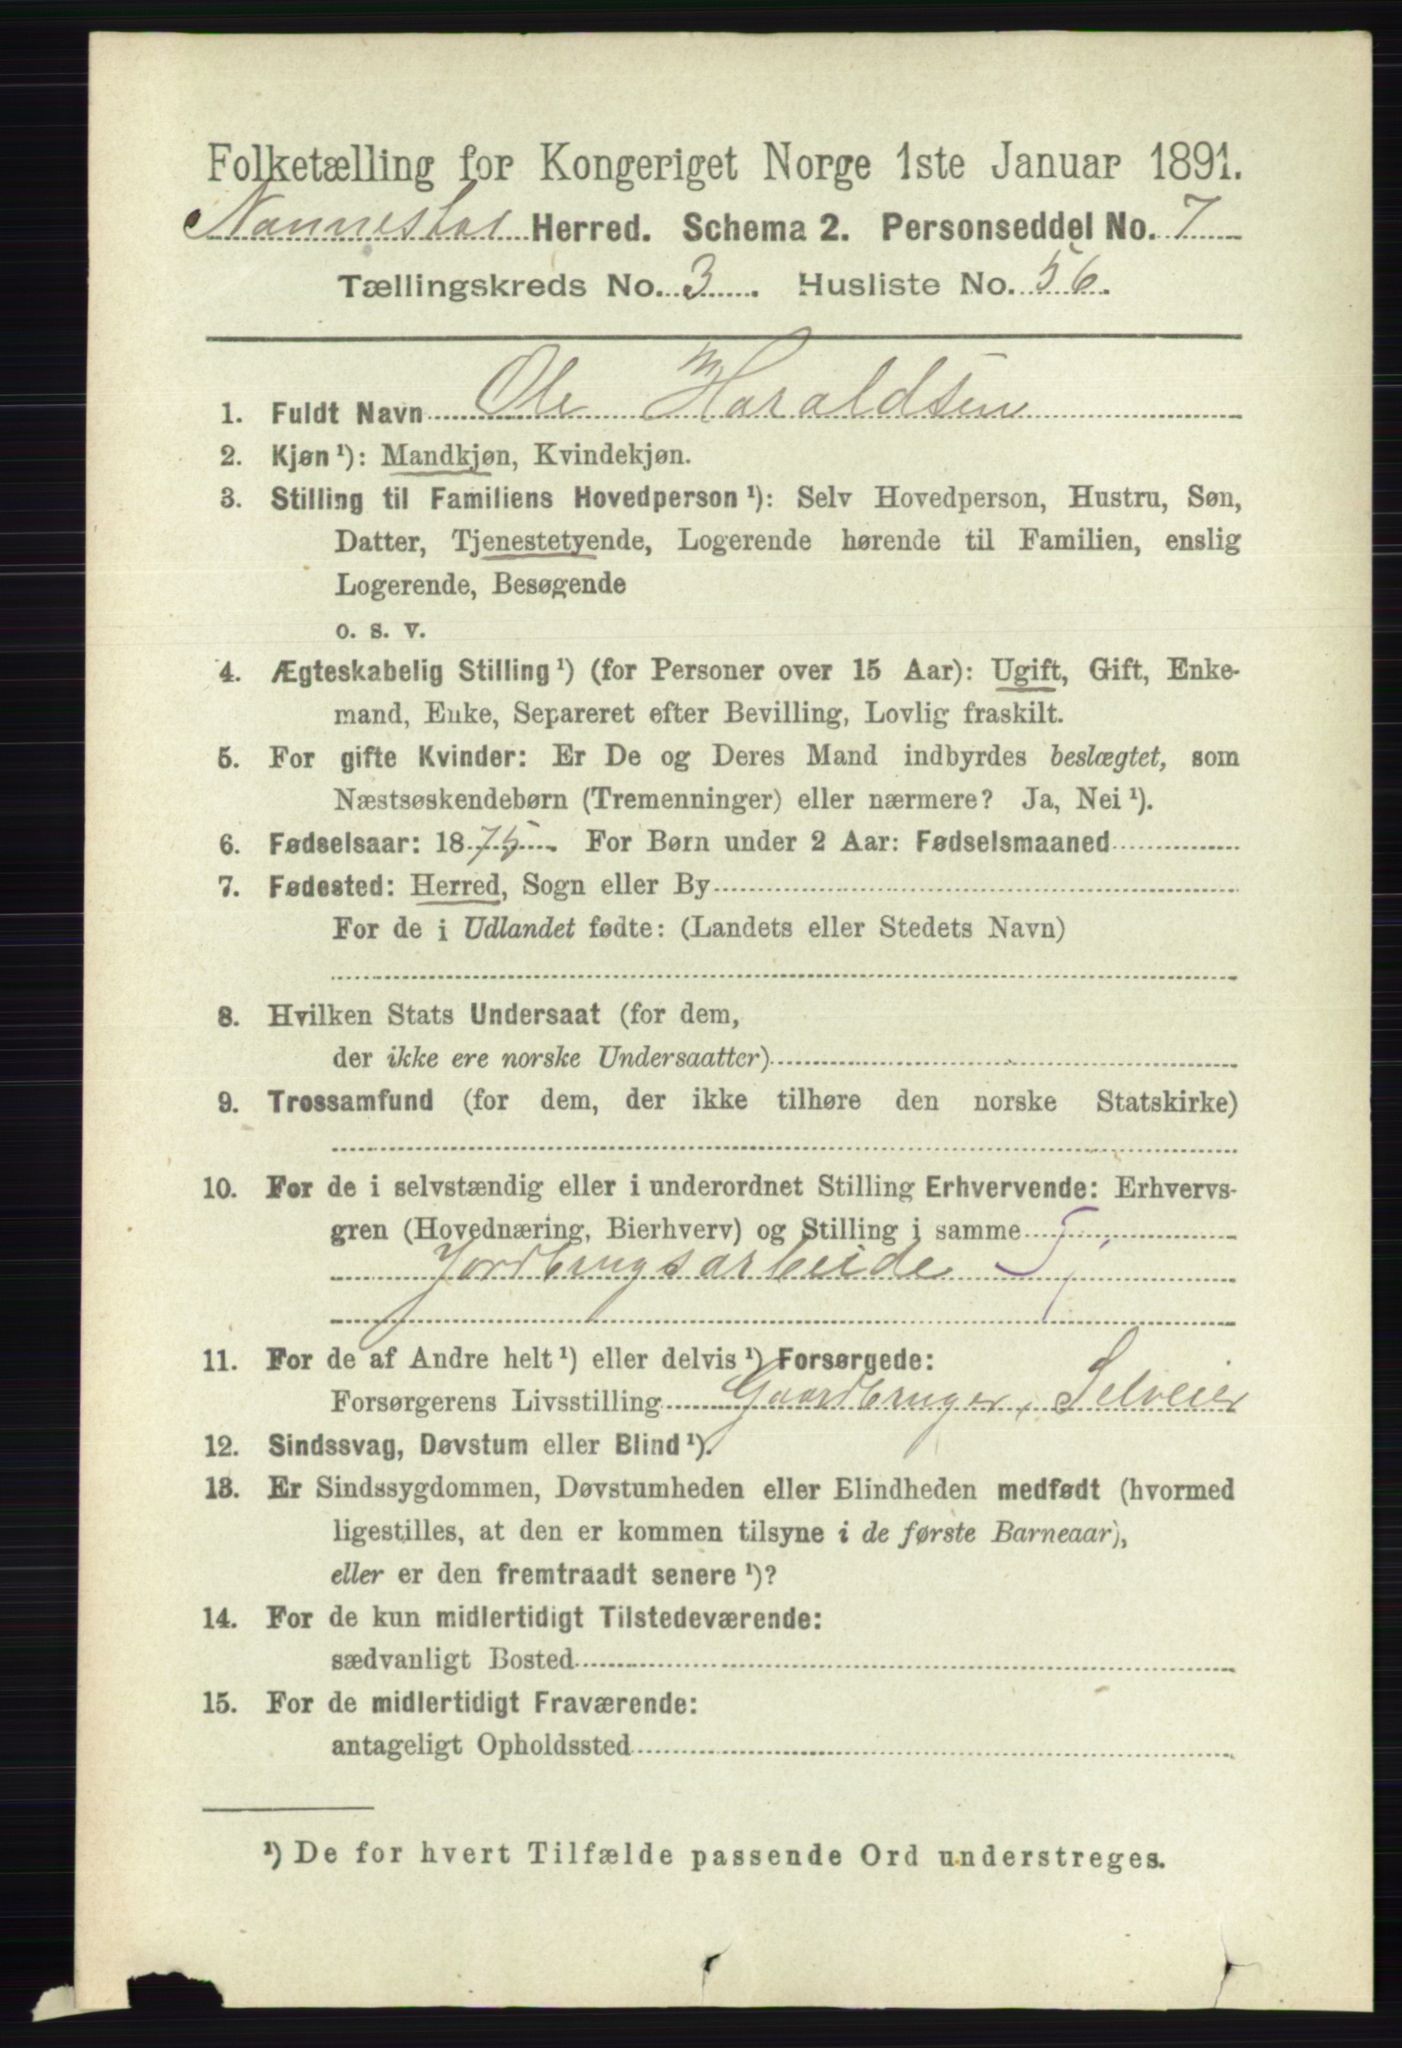 Folketælling for Kongeriget Norge 1ste Januar 1891.
Nannestad Herred. Schema 2. Personseddel No. 7
Tællingskreds No. 3. Husliste No. 56.
1. Fuldt Navn Ole Haraldsen
2. Kjøn ¹): Mandkjøn, Kvindekjøn.
3. Stilling til Familiens Hovedperson ¹): Selv Hovedperson, Hustru, Søn,
Datter, Tjenestetyende, Logerende hørende til Familien, enslig
Logerende, Besøgende
o. s. v.
4. Ægteskabelig Stilling ¹) (for Personer over 15 Aar): Ugift, Gift, Enke-
mand, Enke, Separeret efter Bevilling, Lovlig fraskilt.
5. For gifte Kvinder: Er De og Deres Mand indbyrdes beslægtet, som
Næstsøskendebørn (Tremenninger) eller nærmere? Ja, Nei ¹).
6. Fødselsaar: 1875. For Børn under 2 Aar: Fødselsmaaned
7. Fødested: Herred, Sogn eller By
For de i Udlandet fødte: (Landets eller Stedets Navn)
8. Hvilken Stats Undersaat (for dem,
der ikke ere norske Undersaatter)
9. Trossamfund (for dem, der ikke tilhøre den norske Statskirke)
10. For de i selvstændig eller i underordnet Stilling Erhvervende: Erhvervs-
gren (Hovednæring, Bierhverv) og Stilling i samme
Jordbrugsarbeide Tj
11. For de af Andre helt ¹) eller delvis ¹) Forsørgede:
Forsørgerens Livsstilling Gaardbruger, Selveier
12. Sindssvag, Døvstum eller Blind ¹).
13. Er Sindssygdommen, Døvstumheden eller Blindheden medfødt (hvormed
ligestilles, at den er kommen tilsyne i de første Barneaar),
eller er den fremtraadt senere ¹)?
14. For de kun midlertidigt Tilstedeværende:
sædvanligt Bosted
15. For de midlertidigt Fraværende:
antageligt Opholdssted
¹) De for hvert Tilfælde passende Ord understreges.